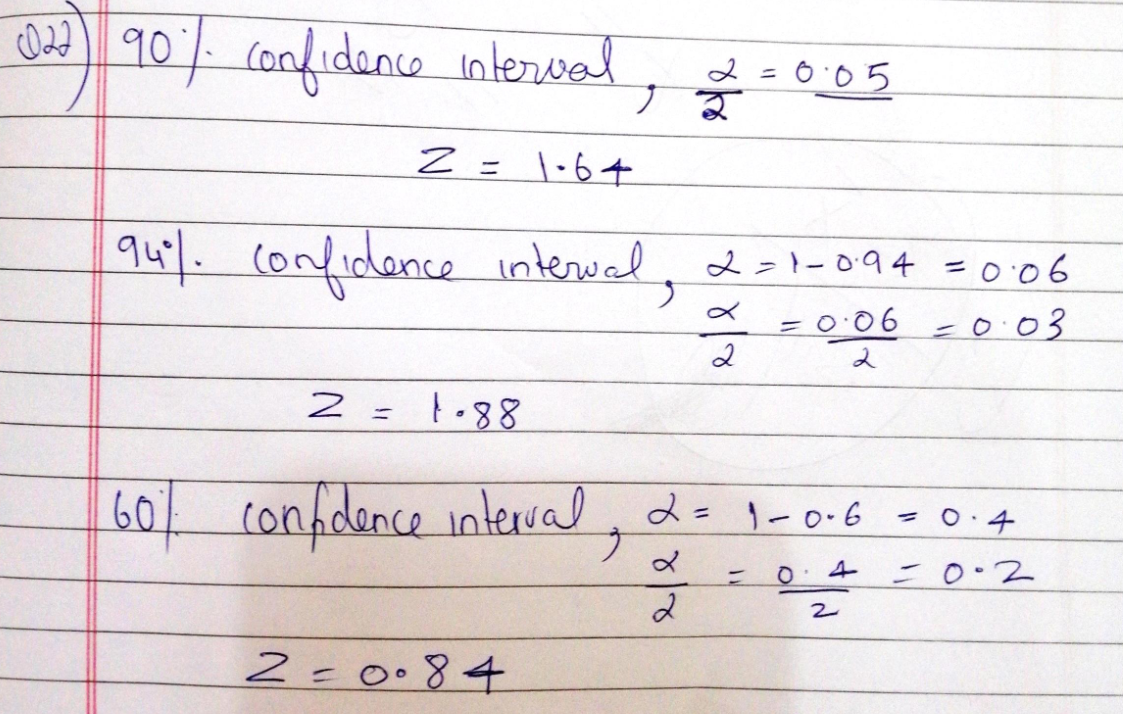 Q22) 90% confidence interval, α/2 = 0.05
Z = 1.64
94% confidence interval, α = 1-0.94 = 0.06
α/2 = 0.06/2 = 0.03
Z = 1.88
60% confidence interval, α = 1-0.6 = 0.4
α/2 = 0.4/2 = 0.2
Z = 0.84